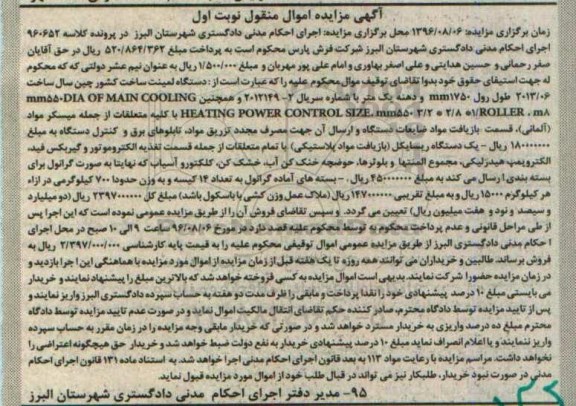 آگهی مزایده اموال منقول نوبت اول
زمان برگزاری مزایده: ۱۳۹۶/۰۸/۰۶ محل برگزاری مزایده: اجرای احکام مدنی دادگستری شهرستان البرز در پرونده کلاسه ۹۶۰۶۵۲
اجرای احکام مدنی دادگستری شهرستان البرز شرکت فرش پارس محکوم است به پرداخت مبلغ ۵۲۰/۸۶۴/۳۶۲ ریال در حق آقایان
صفر رحمانی و حسین هدایتی و علی اصغر بهاوری و امام علی پور مهربان و مبلغ ۱/۵۰۰/۰۰۰ ریال به عنوان نیم عشر دولتی که که محکوم
له جهت استیفای حقوق خود بدوا تقاضای توقیف موال محکوم علیه را که عبارت است از: دستگاه لمینت ساخت کشور چین سال ساخت
۲۰۱۳/۰۶ طول رول mm۱۷۵۰ و دهنه یک متر با شماره سریال ۲-۲۰۱۲۱۴۹ و همچنین mm۵۵۰DIA OF MAIN COOLING
۱/ROLLER ، m۸ HEATING POWER CONTROL SIZE، mm۵۵۰ ۳/۲ * ۲/۸ با کلیه متعلقات از جمله میسکر مواد
(آلمانی)، قسمت بازیافت مواد ضایعات دستگاه و ارسال آن جهت مصرف مجدد تزریق مواد، تابلوهای برق و کنترل دستگاه به مبلغ
۱۸۰۰۰۰۰۰۰۰ ریال - یک دستگاه ریسایکل (بازیافت مواد پلاستیکی) با تمام متعلقات از جمله قسمت تغذیه الکتروموتور و گیربکس فید،
الکتروپمپ هیدرلیکی، مجموع المنتها و بلوترها، حوضچه خنک کن آب، خشک کن، کلکتورو آسیاب که نهایتا به صورت گرانول برای
بسته بندی ارسال می کند به مبلغ ۴۵۰۰۰۰۰۰۰ ریال. - بسته های آماده گرانول به تعداد ۱۴ کیسه و به وزن حدودا ۷۰۰ کیلوگرمی در ازاء
هر کیلوگرم ۱۵۰۰۰ ریال و به مبلغ تقریبی ۱۴۷۰۰۰۰۰۰ ریال (ملاک عمل وزن کشی با باسکول باشد) مبلغ کل ۲۳۹۷۰۰۰۰۰۰ ریال (دو میلیارد
و سیصد و نود و هفت میلیون ریال) تعیین می گردد. و سپس تقاضای فروش آن را از طریق مزایده عمومی نموده است که این اجرا پس
از طی مراحل قانونی و عدم پرداخت محکوم به توسط محکوم علیه قصد دارد در مورخ ۹۶/۰۸/۰۶ ساعت ۹ الی ۱۰ صبح در محل اجرای
احکام مدنی دادگستری البرز از طریق مزایده عمومی اموال توقیفی محکوم علیه را به قیمت پایه کارشناسی ۲/۳۹۷/۰۰۰/۰۰۰ ریال به
فروش برساند. طالبین و خریداران می توانند همه روزه تا یک هفته قبل از زمان مزایده از اموال مورد مزایده با هماهنگی این اجرا بازدید و
در زمان مزایده حضورا شرکت نمایند. بدیهی است اموال مزایده به کسی فروخته خواهد شد که بالاترین مبلغ را پیشنهاد نمایند و خریدار
می بایستی مبلغ ۱۰ درصد پیشنهادی خود را نقدا پرداخت و مابقی را ظرف مدت دو هفته به حساب سپرده دادگستری البرز واریز نمایند و
پس از تایید مزایده توسط دادگاه محترم، صادر کننده حکم تقاضای انتقال مالکیت اموال نماید و در صورت عدم تایید مزایده توسط دادگاه
محترم مبلغ ده درصد واریزی به خریدار مسترد خواهد شد و در صورتی که خریدار مابقی وجه مزایده را در زمان مقرر به حساب سپرده
واریز ننمایند و یا اعلام انصراف نماید مبلغ ۱۰ درصد پیشنهادی خریدار به نفع دولت ضبط خواهد شد و خریدار حق هیچگونه اعتراضی را
نخواهد داشت. مراسم مزایده با رعایت مواد ۱۱۳ به بعد قانون اجرای احکام مدنی اجرا خواهد شد. به استناد ماده ۱۳۱ قانون اجرای احکام
مدنی در صورت نبود خریدار، طلبکار نیز می تواند در قبال طلب خود از اموال مورد مزایده قبول نماید.
۹۵- مدیر دفتر اجرای احکام مدنی دادگستری شهرستان البرز